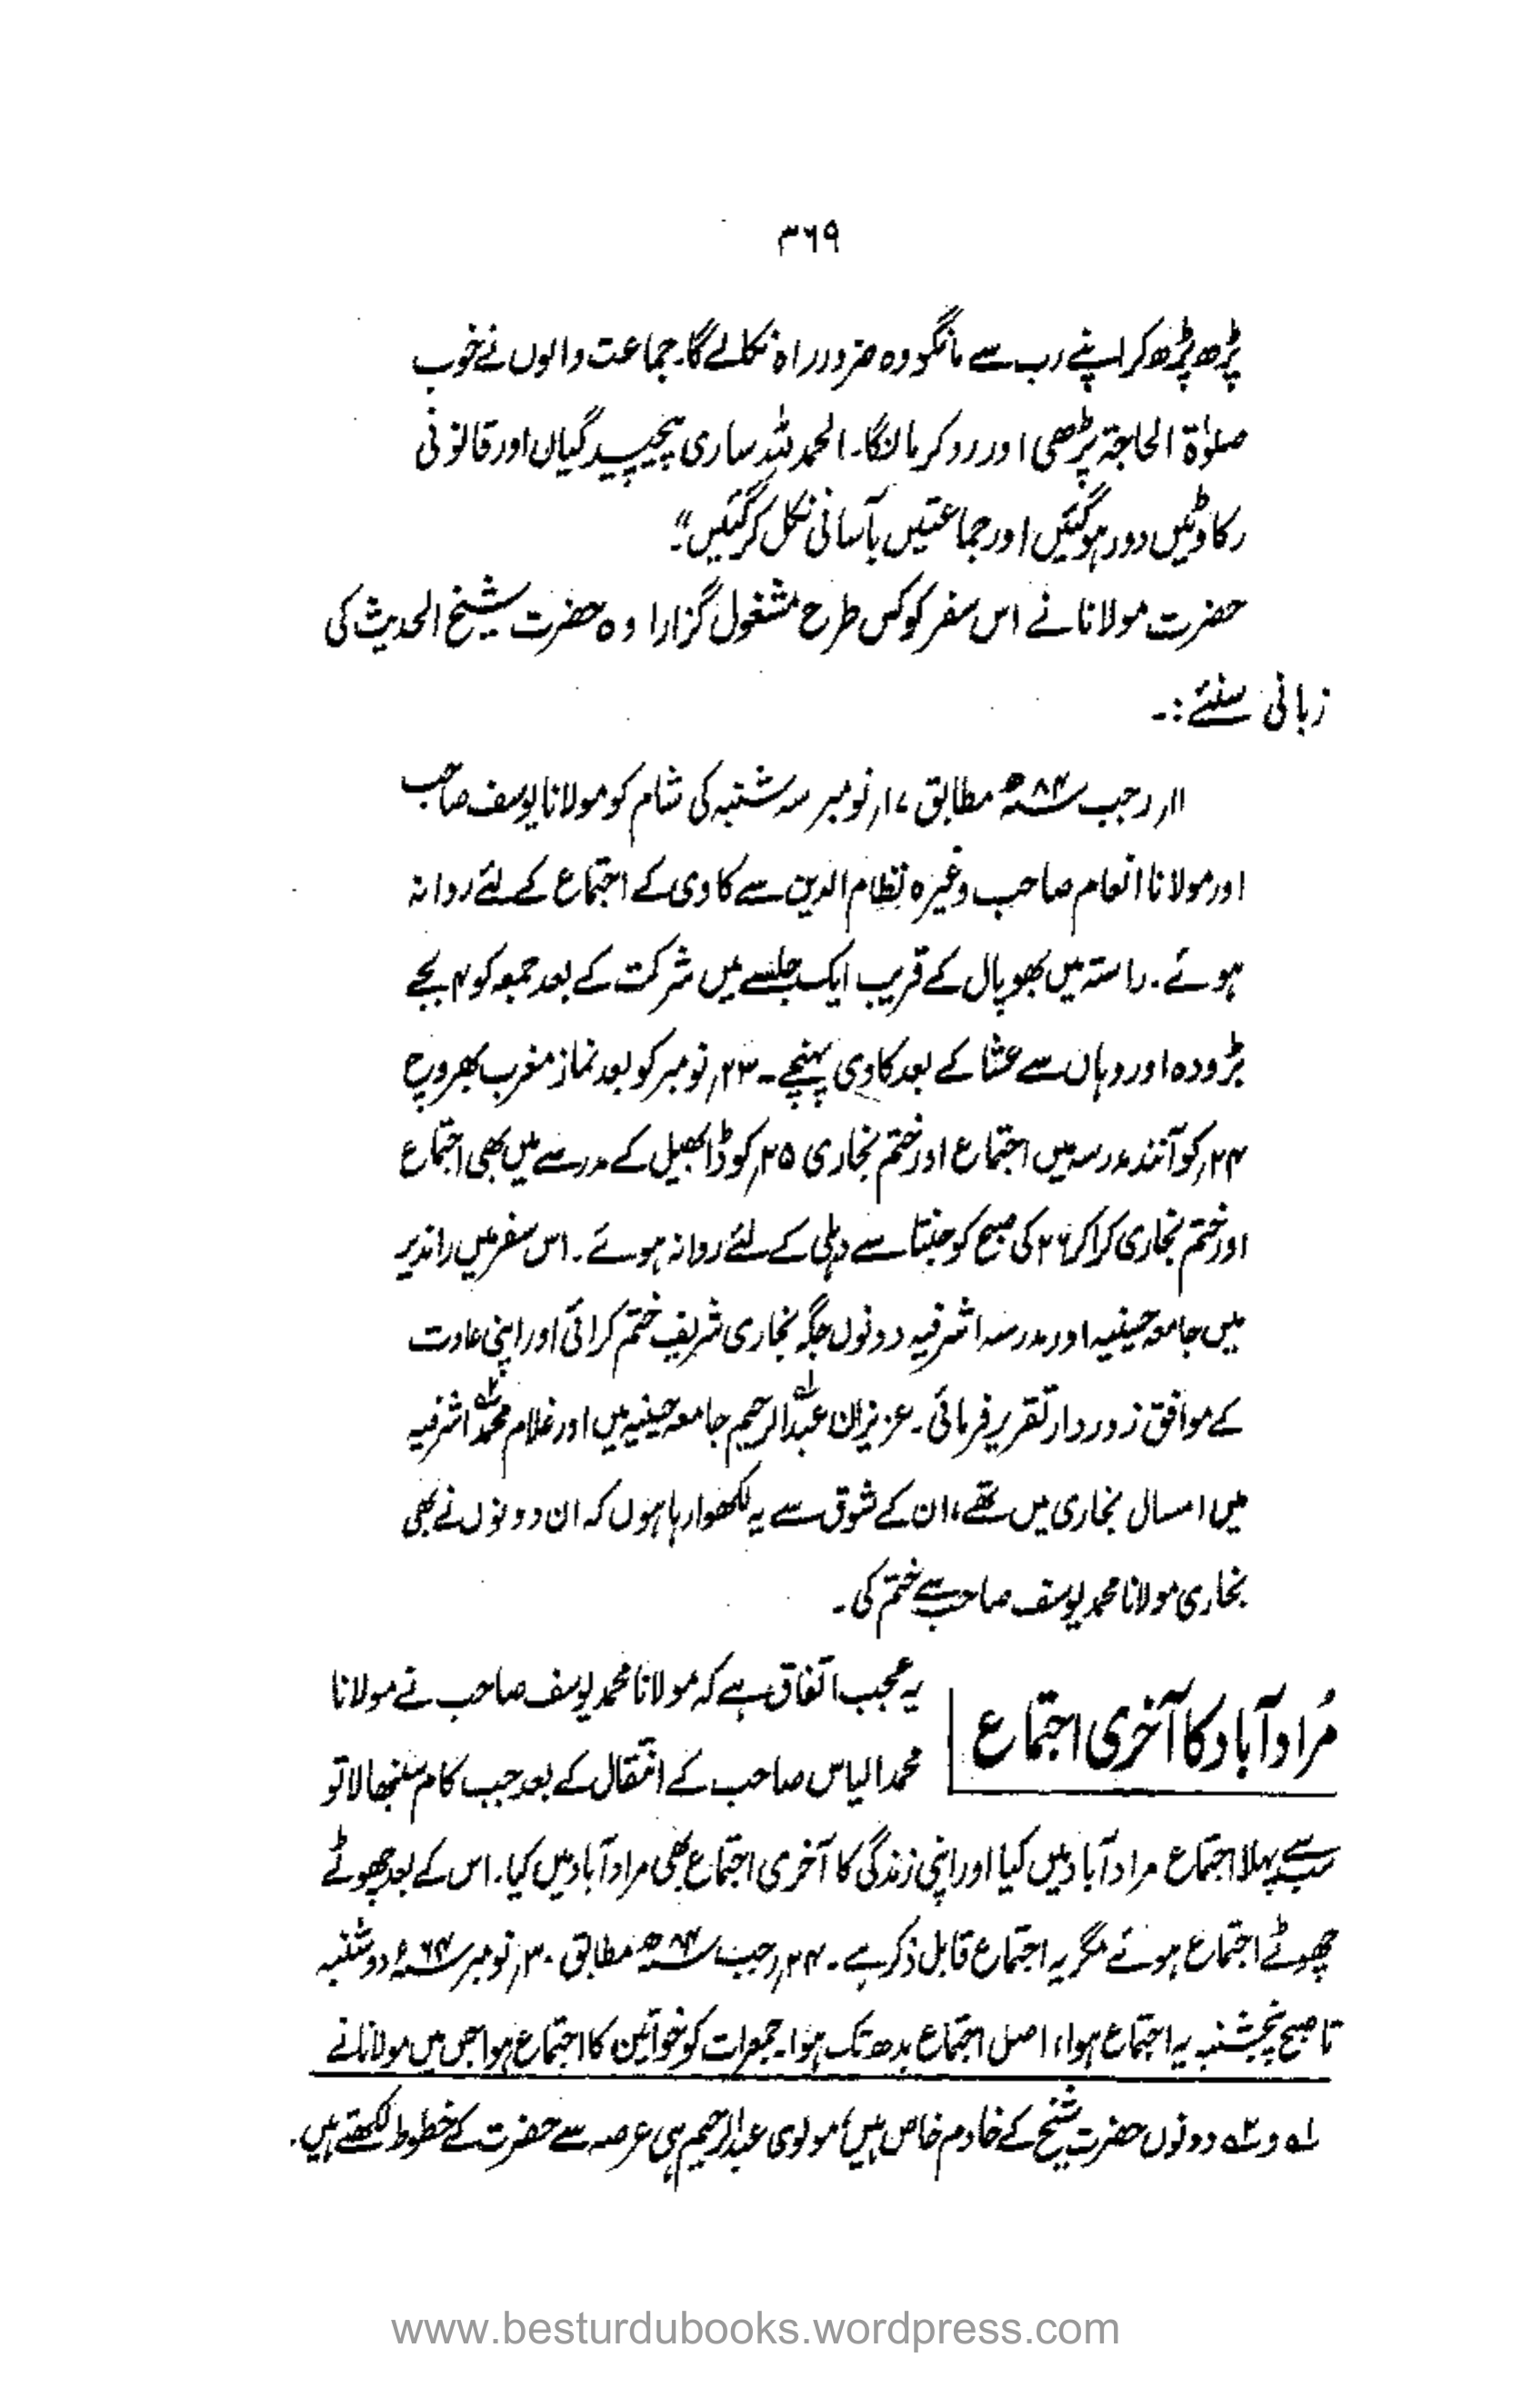 ۳۶۹
پڑھ پڑھ کر اپنے رب سے مانگو وہ ضرور راہ نکالے گا۔ جماعت والوں نے خوب
صلوٰۃ الحاجۃ پڑھی اور رو کر مانگا۔ الحمد للہ ساری پیچیدگیاں اور قانونی
رکاوٹیں دور ہوگئیں اور جماعتیں بآسانی نکل کر گئیں"۔
حضرت مولانا نے اس سفر کو کس طرح مشغول گزارا وہ حضرت شیخ الحدیث کی
زبانی سنئے :۔
۱۱ر رجب ۸۴ھ مطابق ۱۷ر نومبر سہ شنبہ کی شام کو مولانا یوسف صاحب
اور مولانا انعام صاحب وغیرہ نظام الدین سے کاوی کے اجتماع کے لئے روانہ
ہوئے۔ راستہ میں بھوپال کے قریب ایک جلسے میں شرکت کے بعد جمعہ کو ۴ بجے
بڑودہ اور وہاں سے عشا کے بعد کاوی پہنچے۔ ۲۳ر نومبر کو بعد نماز مغرب بھروچ
۲۴ر کو آنند مدرسہ میں اجتماع اور ختم بخاری ۲۵ر کو ڈابھیل کے مدرسے میں بھی اجتماع
اور ختم بخاری کرا کر ۲۶ کی صبح کو جنتا سے دہلی کے لئے روانہ ہوئے۔ اس سفر میں راندیر
میں جامعہ حسینیہ اور مدرسہ اشرفیہ دونوں جگہ بخاری شریف ختم کرائی اور اپنی عادت
کے موافق زوردار تقریر فرمائی۔ عزیزان عبدالرحیم۱ جامعہ حسینیہ میں اور غلام محمد۲ اشرفیہ
میں امسال بخاری میں تھے، ان کے شوق سے یہ لکھوا رہا ہوں کہ ان دونوں نے بھی
بخاری مولانا محمد یوسف صاحب سے ختم کی۔
مُراد آباد کا آخری اجتماع
یہ عجیب اتفاق ہے کہ مولانا محمد یوسف صاحب نے مولانا
محمد الیاس صاحب کے انتقال کے بعد جب کام سنبھالا تو
سب سے پہلا اجتماع مراد آباد میں کیا اور اپنی زندگی کا آخری اجتماع بھی مراد آباد میں کیا۔ اس کے بعد چھوٹے
چھوٹے اجتماع ہوئے مگر یہ اجتماع قابل ذکر ہے۔ ۲۴ر رجب ۸۴ھ مطابق ۳۰ر نومبر ۶۴ء دو شنبہ
تا صبح پنجشنبہ یہ اجتماع ہوا، اصل اجتماع بدھ تک ہوا۔ جمعرات کو خواتین کا اجتماع ہوا جس میں مولانا نے
۱ و ۲ دونوں حضرت شیخ کے خادم خاص ہیں، مولوی عبدالرحیم ہی عرصہ سے حضرت کے خطوط لکھتے ہیں۔
www.besturdubooks.wordpress.com